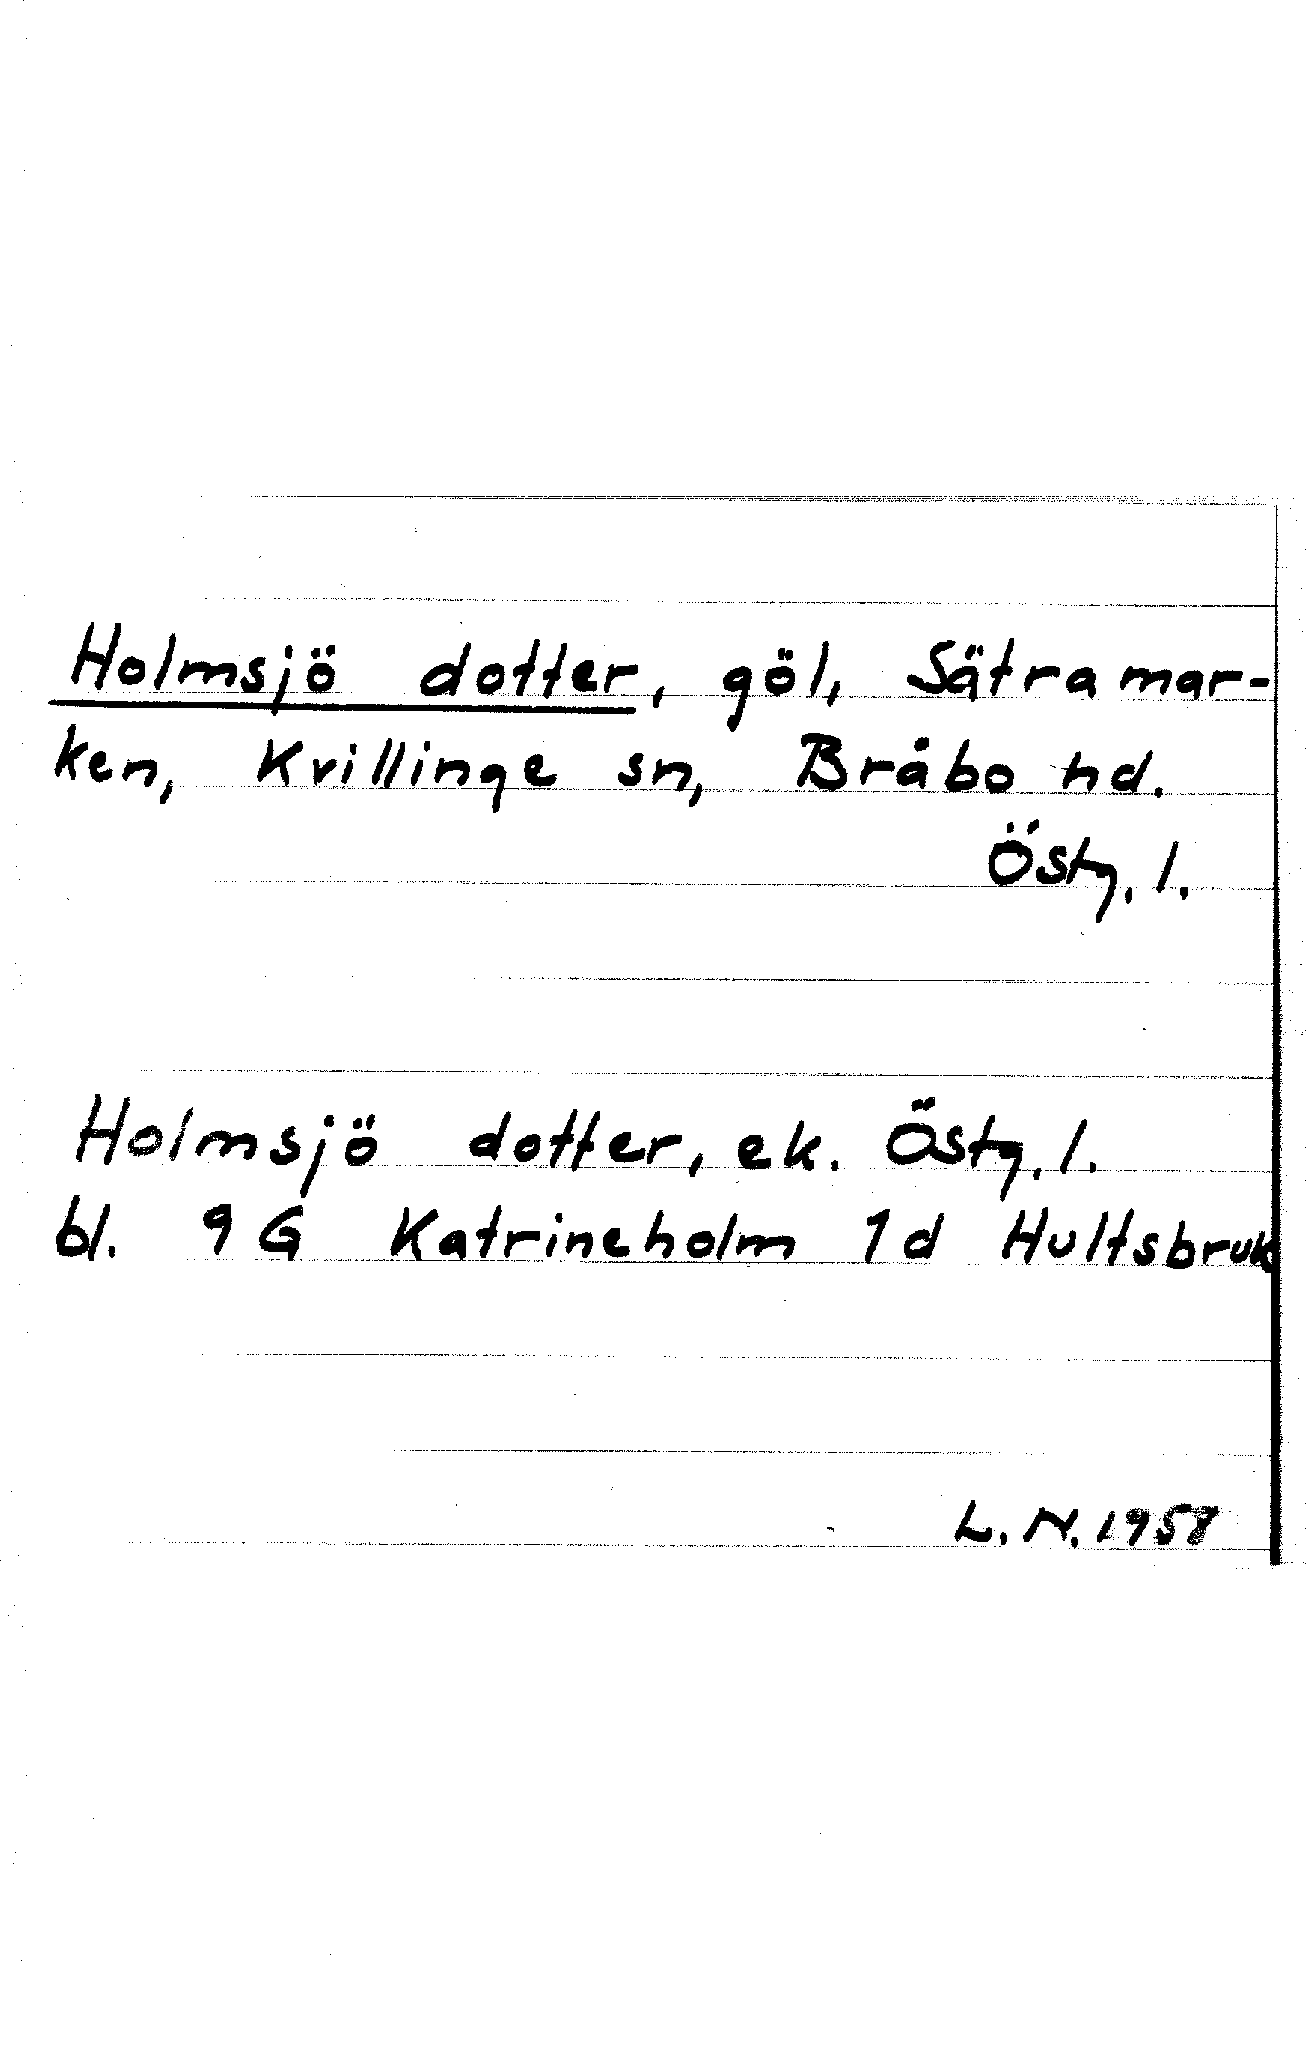 Holmsjö dotter, göl, Sätramar-
ken, Kvillinge sn, Bråbo hd.
Östg. l.
Holmsjö dotter, ek. Östg. l.
bl. 9 G Katrineholm 1d Hultsbruk
L. N. 1958